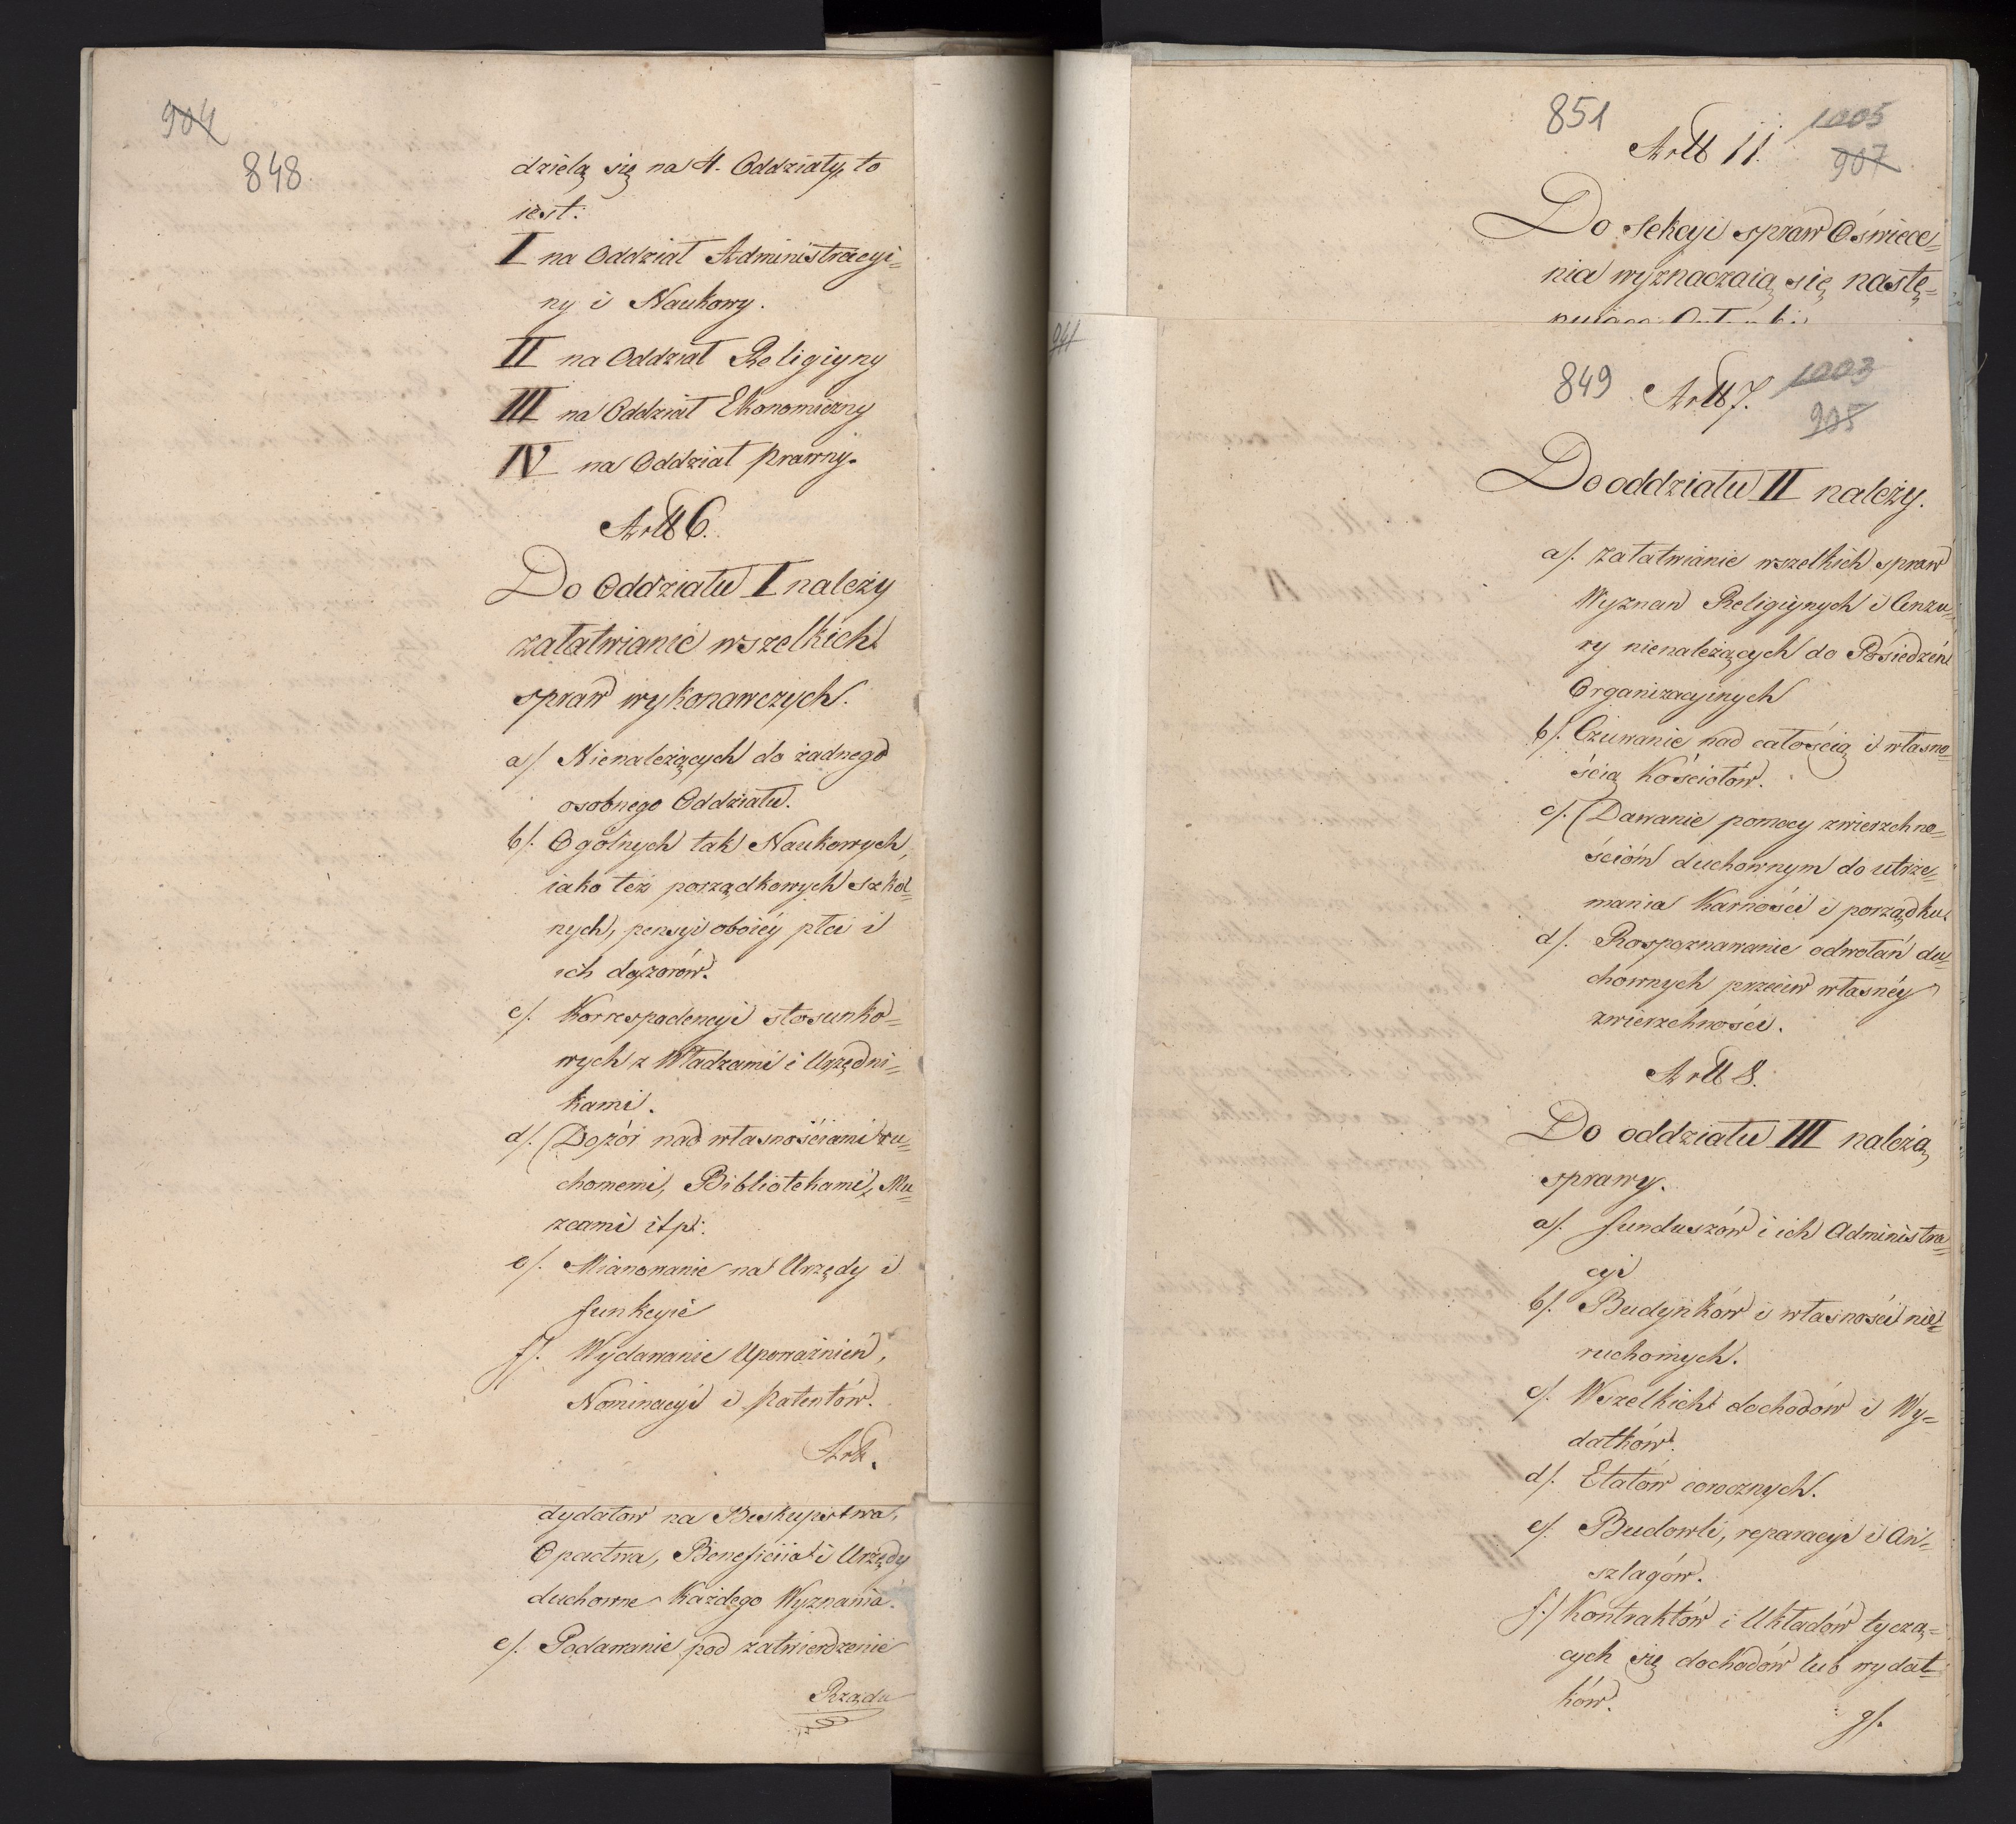 904
848.
dzielą się na 4. Oddziały, to
iest:
I na Oddział Administracyi=
ny i Naukowy.
II na Oddział Religiyny
III na Oddział Ekonomiczny
IV na Oddział prawny.
Artt 6.
Do Oddziału I należy
załatwianie wszelkich
spraw wykonawczych.
a/. Nienależących do żadnego
osobnego Oddziału.
b/. Ogólnych tak Naukowych,
iako też porządkowych szkol=
nych, pensyi oboiéy płci i
ich dozorów.
c/. Korrespodencyi stosunko=
wych z Władzami i Urzędni=
kami.
d/. Dozór nad własnościami ru=
chomemi, Bibliotekami, Mu=
zeami itp:
e/. Mianowanie na Urzędy i
funkcyie
f/. Wydawanie Upoważnień,
Nominacyi i patentów.
Artt.
dydatow na Biskupstwa,
Opactwa, Beneficiia i Urzędy
duchowne każdego Wyznania.
e/. Podawanie pod zatwierdzenie
Rządu
851
1005
907
Artt 11.
Do Sekcyi spraw Oświece=
nia wyznaczaią się nastę=
941
849
1003
905
Artt 7.
Do oddziału II należy.
a/. załatwianie wszelkich spraw
Wyznań Religiynych i Cenzu=
ry nienależących do Posiedzeń
Organizacyinych
b/. Czuwanie nad całością i własno=
ścią Kościołów.
c/. Dawanie pomocy zwierzchno=
ścióm duchownym do utrzy=
mania Karności i porządku.
d/. Rospoznawanie odwołań du=
chownych przeciw własnéy
zwierzchności.
Artt 8.
Do oddziału III należą
sprawy.
a/. funduszów i ich Administra=
cyi
b/. Budynków i własności nie=
ruchomych.
c/. Wszelkich dochodów i Wy=
datków.
d/. Etatów corocznych.
e/. Budowli, reparacyi i An=
szlagów.
f/. Kontraktów i Układów tyczą=
cych się dochodów lub wydat=
ków.
g/.